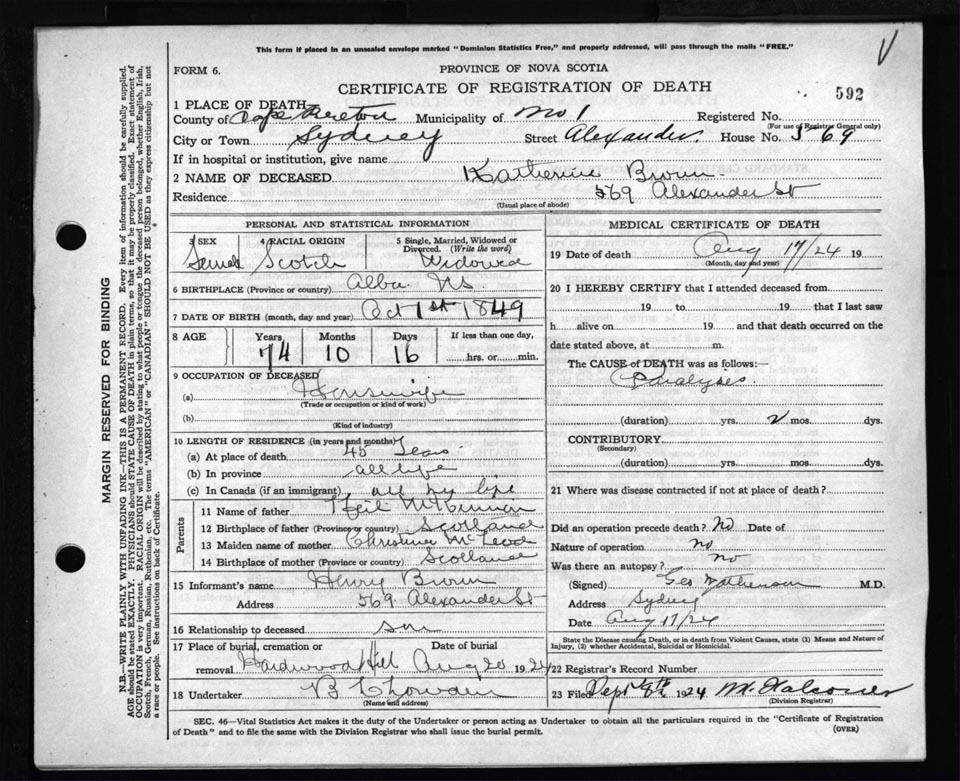 This form if placed in an unsealed envelope marked "Dominion Statistics Free," and properly addressed, will pass through the mails "FREE."
V
FORM 6.
PROVINCE OF NOVA SCOTIA
CERTIFICATE OF REGISTRATION OF DEATH
592
1 PLACE OF DEATH
County of Cape Breton Municipality of No 1 Registered No.
(For use of Registrar General only)
City or Town Sydney Street Alexander House No. 569
If in hospital or institution, give name
2 NAME OF DECEASED Katherine Brown
Residence 569 Alexander St
(Usual place of abode)
PERSONAL AND STATISTICAL INFORMATION
3 SEX 4 RACIAL ORIGIN 5 Single, Married, Widowed or Divorced. (Write the word)
Female Scotch Widowed
6 BIRTHPLACE (Province or country) Alba NS
7 DATE OF BIRTH (month, day and year) Oct 1st 1849
8 AGE Years Months Days If less than one day,
74 10 16 hrs. or min.
9 OCCUPATION OF DECEASED
(a) Housewife
(Trade or occupation or kind of work)
(b)
(Kind of industry)
10 LENGTH OF RESIDENCE (in years and months)
(a) At place of death 45 Years
(b) In province all life
(c) In Canada (if an immigrant) all my life
Parents
11 Name of father Neil McKinnon
12 Birthplace of father (Province or country) Scotland
13 Maiden name of mother Christine McLeod
14 Birthplace of mother (Province or country) Scotland
15 Informant's name Henry Brown
Address 569 Alexander St
16 Relationship to deceased son
17 Place of burial, cremation or removal Date of burial
Hardwood Hill Aug 20 1924
18 Undertaker B Chowden
(Name and address)
MEDICAL CERTIFICATE OF DEATH
19 Date of death Aug 17/24 19
(Month, day and year)
20 I HEREBY CERTIFY that I attended deceased from
19 to 19 that I last saw
h alive on 19 and that death occurred on the
date stated above, at m.
The CAUSE of DEATH was as follows:—
Paralyses
(duration) yrs. 2 mos. dys.
CONTRIBUTORY
(Secondary)
(duration) yrs. mos. dys.
21 Where was disease contracted if not at place of death?
Did an operation precede death? No Date of
Nature of operation no
Was there an autopsy? No
(Signed) Geo M.D.
Address Sydney
Date Aug 17/24
State the Disease causing Death, or in death from Violent Causes, state (1) Means and Nature of
Injury, (2) whether Accidental, Suicidal or Homicidal.
22 Registrar's Record Number
23 Filed Sept 8th 1924 M. Falconer
(Division Registrar)
SEC. 46—Vital Statistics Act makes it the duty of the Undertaker or person acting as Undertaker to obtain all the particulars required in the "Certificate of Registration
of Death" and to file the same with the Division Registrar who shall issue the burial permit.
(OVER)
MARGIN RESERVED FOR BINDING
N.B.—WRITE PLAINLY WITH UNFADING INK—THIS IS A PERMANENT RECORD. Every item of information should be carefully supplied.
AGE should be stated EXACTLY. PHYSICIANS should STATE CAUSE OF DEATH in plain terms, so that it may be properly classified. Exact statement of
OCCUPATION is very important. RACIAL ORIGIN will be described by stating to what people or tongue the deceased person belonged, whether English, Irish,
Scotch, French, German, Russian, Ruthenian, etc. The terms "AMERICAN" or "CANADIAN" SHOULD NOT BE USED as they express citizenship but not
a race or people. See instructions on back of Certificate.